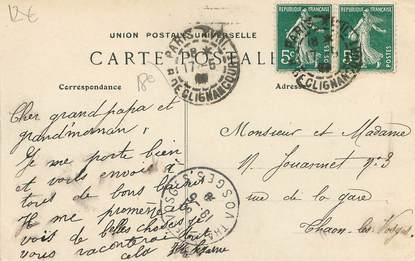 12€
UNION POSTALE UNIVERSELLE
CARTE POSTALE
18e
Correspondance
Adresse
RÉPUBLIQUE FRANÇAISE
RÉPUBLIQUE FRANÇAISE
5c POSTES
5c POSTES
PARIS
R. DE CLIGNANCOURT
PARIS
R. DE CLIGNANCOURT
VOSGES
Cher grand papa et
grand'maman,
Je me porte bien
et vous envoie à
tous de bons baisers
Je me promène et
vois de belles choses je
vous raconterai tout
cela
Monsieur et Madame
N. Jouasmet n° 3
rue de la gare
Thaon les Vosges